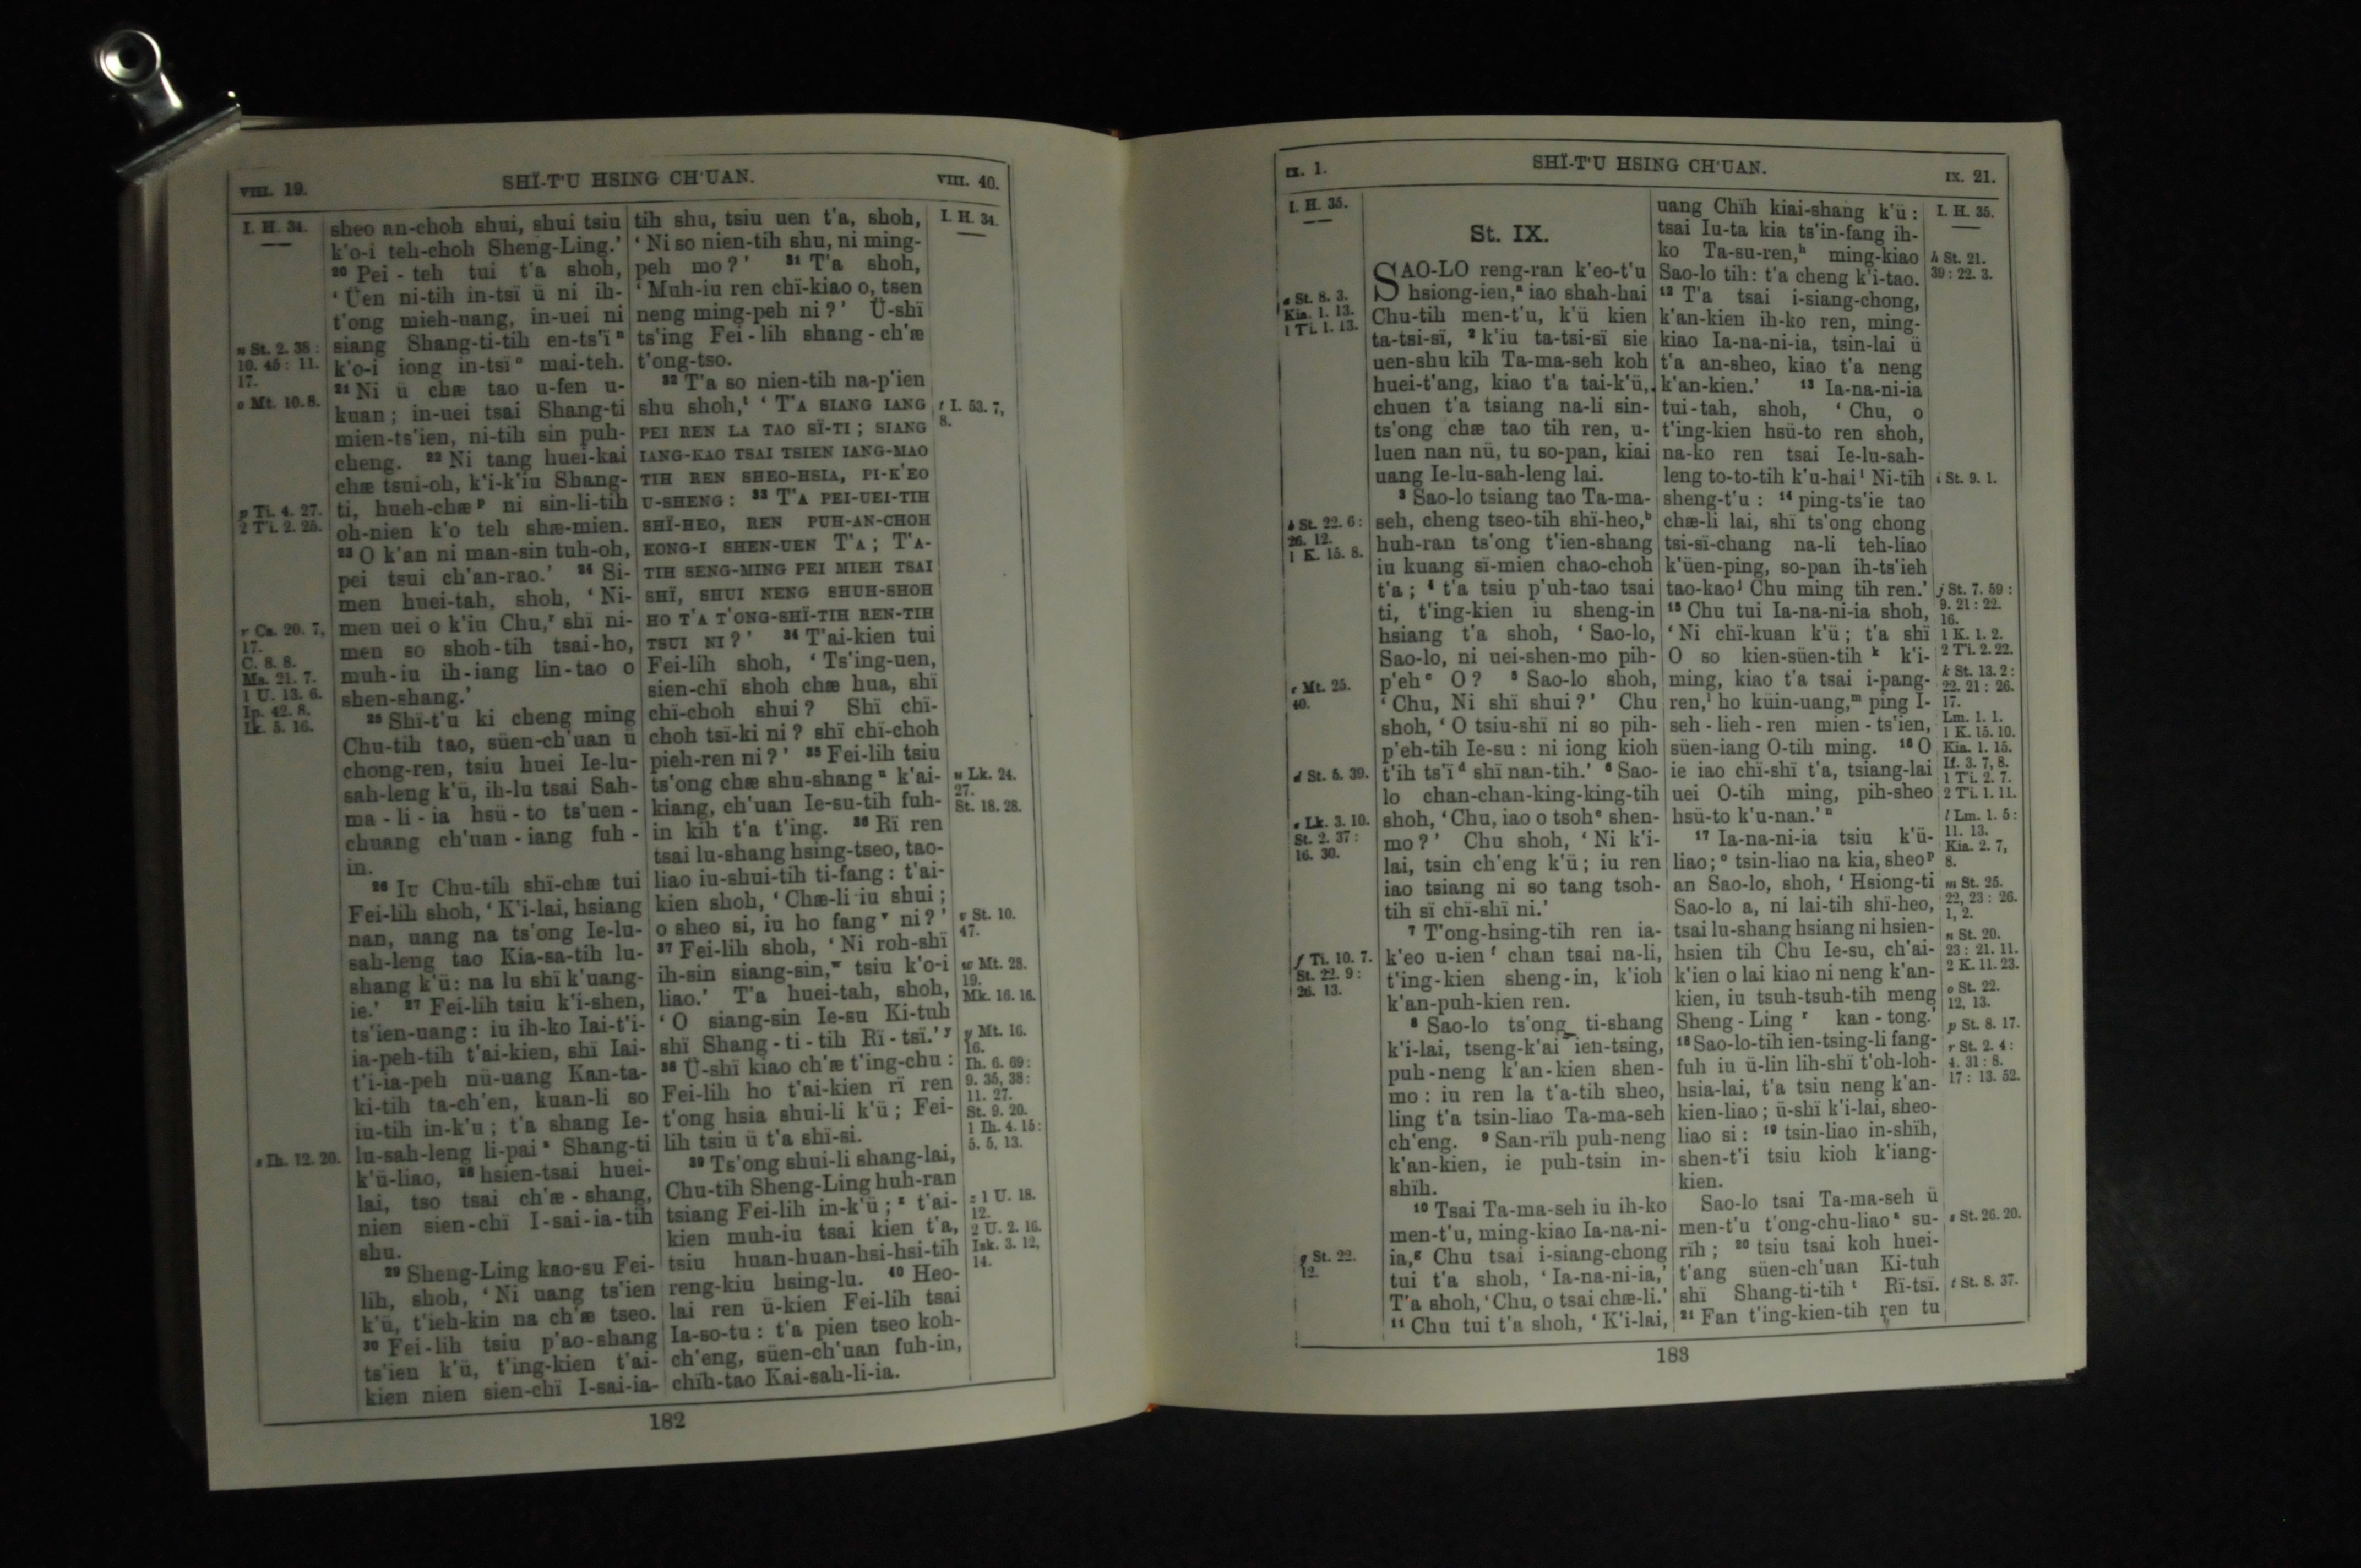 VIII. 19.
SHÏ-T'U HSING CH'UAN.
VIII. 40.
I. H. 34.
n St. 2. 38 :
10. 45 : 11.
17.
o Mt. 10. 8.
p Ti. 4. 27.
2 Ti. 2. 25.
r Cs. 20. 7,
17.
C. 8. 8.
Ma. 21. 7.
1 U. 13. 6.
Ip. 42. 8.
Ik. 5. 16.
s Ih. 12. 20.
sheo an-choh shui, shui tsiu
k'o-i teh-choh Sheng-Ling.'
20 Pei-teh tui t'a shoh,
'Üen ni-tih in-tsï ü ni ih-
t'ong mieh-uang, in-uei ni
siang Shang-ti-tih en-ts'ï n
k'o-i iong in-tsï o mai-teh.
21 Ni ü chæ tao u-fen u-
kuan; in-uei tsai Shang-ti
mien-ts'ien, ni-tih sin puh-
cheng. 22 Ni tang huei-kai
chæ tsui-oh, k'i-k'iu Shang-
ti, hueh-chæ p ni sin-li-tih
oh-nien k'o teh shæ-mien.
23 O k'an ni man-sin tuh-oh,
pei tsui ch'an-rao.' 24 Si-
men huei-tah, shoh, 'Ni-
men uei o k'iu Chu, r shï ni-
men so shoh-tih tsai-ho,
muh-iu ih-iang lin-tao o
shen-shang.'
25 Shï-t'u ki cheng ming
Chu-tih tao, süen-ch'uan ü
chong-ren, tsiu huei Ie-lu-
sah-leng k'ü, ih-lu tsai Sah-
ma-li-ia hsü-to ts'uen-
chuang ch'uan-iang fuh-
in.
26 Iu Chu-tih shï-chæ tui
Fei-lih shoh, 'K'i-lai, hsiang
nan, uang na ts'ong Ie-lu-
sah-leng tao Kia-sa-tih lu-
shang k'ü: na lu shï k'uang-
ie.' 27 Fei-lih tsiu k'i-shen,
ts'ien-uang: iu ih-ko Iai-t'i-
ia-peh-tih t'ai-kien, shï Iai-
t'i-ia-peh nü-uang Kan-ta-
ki-tih ta-ch'en, kuan-li so
iu-tih in-k'u; t'a shang Ie-
lu-sah-leng li-pai s Shang-ti
k'ü-liao, 28 hsien-tsai huei-
lai, tso tsai ch'æ-shang,
nien sien-chï I-sai-ia-tih
shu.
29 Sheng-Ling kao-su Fei-
lih, shoh, 'Ni uang ts'ien
k'ü, t'ieh-kin na ch'æ tseo.
30 Fei-lih tsiu p'ao-shang
ts'ien k'ü, t'ing-kien t'ai-
kien nien sien-chï I-sai-ia-
tih shu, tsiu uen t'a, shoh,
'Ni so nien-tih shu, ni ming-
peh mo?' 31 T'a shoh,
'Muh-iu ren chï-kiao o, tsen
neng ming-peh ni?' Ü-shï
ts'ing Fei-lih shang-ch'æ
t'ong-tso.
32 T'a so nien-tih na-p'ien
shu shoh, t 'T'A SIANG IANG
PEI REN LA TAO SÏ-TI; SIANG
IANG-KAO TSAI TSIEN IANG-MAO
TIH REN SHEO-HSIA, PI-K'EO
U-SHENG: 33 T'A PEI-UEI-TIH
SHÏ-HEO, REN PUH-AN-CHOH
KONG-I SHEN-UEN T'A; T'A-
TIH SENG-MING PEI MIEH TSAI
SHÏ, SHUI NENG SHUH-SHOH
HO T'A T'ONG-SHÏ-TIH REN-TIH
TSUI NI?' 34 T'ai-kien tui
Fei-lih shoh, 'Ts'ing-uen,
sien-chï shoh chæ hua, shï
chï-choh shui? Shï chï-
choh tsï-ki ni? shï chï-choh
pieh-ren ni?' 35 Fei-lih tsiu
ts'ong chæ shu-shang u k'ai-
kiang, ch'uan Ie-su-tih fuh-
in kih t'a t'ing. 36 Rï ren
tsai lu-shang hsing-tseo, tao-
liao iu-shui-tih ti-fang: t'ai-
kien shoh, 'Chæ-li iu shui;
o sheo si, iu ho fang v ni?'
37 Fei-lih shoh, 'Ni roh-shï
ih-sin siang-sin, w tsiu k'o-i
liao.' T'a huei-tah, shoh,
'O siang-sin Ie-su Ki-tuh
shï Shang-ti-tih Rï-tsï.' y
38 Ü-shï kiao ch'æ t'ing-chu:
Fei-lih ho t'ai-kien rï ren
t'ong hsia shui-li k'ü; Fei-
lih tsiu ü t'a shï-si.
39 Ts'ong shui-li shang-lai,
Chu-tih Sheng-Ling huh-ran
tsiang Fei-lih in-k'ü; z t'ai-
kien muh-iu tsai kien t'a,
tsiu huan-huan-hsi-hsi-tih
reng-kiu hsing-lu. 40 Heo-
lai ren ü-kien Fei-lih tsai
Ia-so-tu: t'a pien tseo koh-
ch'eng, süen-ch'uan fuh-in,
chïh-tao Kai-sah-li-ia.
I. H. 34.
t I. 53. 7,
8.
u Lk. 24.
27.
St. 18. 28.
v St. 10.
47.
w Mt. 28.
19.
Mk. 16. 16.
y Mt. 16.
16.
Ih. 6. 69:
9. 35, 38:
11. 27.
St. 9. 20.
1 Ih. 4. 15:
5. 5, 13.
z 1 U. 18.
12.
2 U. 2. 16.
Isk. 3. 12,
14.
182
IX. 1.
SHÏ-T'U HSING CH'UAN.
IX. 21.
I. H. 35.
a St. 8. 3.
Kia. 1. 13.
1 Ti. 1. 13.
b St. 22. 6:
26. 12.
1 K. 15. 8.
c Mt. 25.
40.
d St. 5. 39.
e Lk. 3. 10.
St. 2. 37:
16. 30.
f Ti. 10. 7.
St. 22. 9:
26. 13.
g St. 22.
12.
St. IX.
SAO-LO reng-ran k'eo-t'u
hsiong-ien, a iao shah-hai
Chu-tih men-t'u, k'ü kien
ta-tsi-sï, 2 k'iu ta-tsi-sï sie
uen-shu kih Ta-ma-seh koh
huei-t'ang, kiao t'a tai-k'ü,
chuen t'a tsiang na-li sin-
ts'ong chæ tao tih ren, u-
luen nan nü, tu so-pan, kiai
uang Ie-lu-sah-leng lai.
3 Sao-lo tsiang tao Ta-ma-
seh, cheng tseo-tih shï-heo, b
huh-ran ts'ong t'ien-shang
iu kuang sï-mien chao-choh
t'a; 4 t'a tsiu p'uh-tao tsai
ti, t'ing-kien iu sheng-in
hsiang t'a shoh, 'Sao-lo,
Sao-lo, ni uei-shen-mo pih-
p'eh c O? 5 Sao-lo shoh,
'Chu, Ni shï shui?' Chu
shoh, 'O tsiu-shï ni so pih-
p'eh-tih Ie-su: ni iong kioh
t'ih ts'ï d shï nan-tih.' 6 Sao-
lo chan-chan-king-king-tih
shoh, 'Chu, iao o tsoh e shen-
mo?' Chu shoh, 'Ni k'i-
lai, tsin ch'eng k'ü; iu ren
iao tsiang ni so tang tsoh-
tih sï chï-shï ni.'
7 T'ong-hsing-tih ren ia-
k'eo u-ien f chan tsai na-li,
t'ing-kien sheng-in, k'ioh
k'an-puh-kien ren.
8 Sao-lo ts'ong ti-shang
k'i-lai, tseng-k'ai ien-tsing,
puh-neng k'an-kien shen-
mo: iu ren la t'a-tih sheo,
ling t'a tsin-liao Ta-ma-seh
ch'eng. 9 San-rïh puh-neng
k'an-kien, ie puh-tsin in-
shïh.
10 Tsai Ta-ma-seh iu ih-ko
men-t'u, ming-kiao Ia-na-ni-
ia, g Chu tsai i-siang-chong
tui t'a shoh, 'Ia-na-ni-ia,'
T'a shoh, 'Chu, o tsai chæ-li.'
11 Chu tui t'a shoh, 'K'i-lai,
uang Chïh kiai-shang k'ü:
tsai Iu-ta kia ts'in-fang ih-
ko Ta-su-ren, h ming-kiao
Sao-lo tih: t'a cheng k'i-tao.
12 T'a tsai i-siang-chong,
k'an-kien ih-ko ren, ming-
kiao Ia-na-ni-ia, tsin-lai ü
t'a an-sheo, kiao t'a neng
k'an-kien.' 13 Ia-na-ni-ia
tui-tah, shoh, 'Chu, o
t'ing-kien hsü-to ren shoh,
na-ko ren tsai Ie-lu-sah-
leng to-to-tih k'u-hai i Ni-tih
sheng-t'u: 14 ping-ts'ie tao
chæ-li lai, shï ts'ong chong
tsi-sï-chang na-li teh-liao
k'üen-ping, so-pan ih-ts'ieh
tao-kao j Chu ming tih ren.'
15 Chu tui Ia-na-ni-ia shoh,
'Ni chï-kuan k'ü; t'a shï
O so kien-süen-tih k k'i-
ming, kiao t'a tsai i-pang-
ren, l ho küin-uang, m ping I-
seh-lieh-ren mien-ts'ien,
süen-iang O-tih ming. 16 O
ie iao chï-shï t'a, tsiang-lai
uei O-tih ming, pih-sheo
hsü-to k'u-nan.' n
17 Ia-na-ni-ia tsiu k'ü-
liao; o tsin-liao na kia, sheo p
an Sao-lo, shoh, 'Hsiong-ti
Sao-lo a, ni lai-tih shï-heo,
tsai lu-shang hsiang ni hsien-
hsien tih Chu Ie-su, ch'ai-
k'ien o lai kiao ni neng k'an-
kien, iu tsuh-tsuh-tih meng
Sheng-Ling r kan-tong.'
18 Sao-lo-tih ien-tsing-li fang-
fuh iu ü-lin lih-shï t'oh-loh-
hsia-lai, t'a tsiu neng k'an-
kien-liao; ü-shï k'i-lai, sheo-
liao si: 19 tsin-liao in-shïh,
shen-t'i tsiu kioh k'iang-
kien.
Sao-lo tsai Ta-ma-seh ü
men-t'u t'ong-chu-liao s su-
rïh; 20 tsiu tsai koh huei-
t'ang süen-ch'uan Ki-tuh
shï Shang-ti-tih t Rï-tsï.
21 Fan t'ing-kien-tih ren tu
I. H. 35.
h St. 21.
39: 22. 3.
i St. 9. 1.
j St. 7. 59:
9. 21: 22.
16.
1 K. 1. 2.
2 Ti. 2. 22.
k St. 13. 2:
22. 21: 26.
17.
Lm. 1. 1.
1 K. 15. 10.
Kia. 1. 15.
If. 3. 7, 8.
1 Ti. 2. 7.
2 Ti. 1. 11.
l Lm. 1. 5:
11. 13.
Kia. 2. 7,
8.
m St. 25.
22, 23: 26.
1, 2.
n St. 20.
23: 21. 11.
2 K. 11. 23.
o St. 22.
12, 13.
p St. 8. 17.
r St. 2. 4:
4. 31: 8.
17: 13. 52.
s St. 26. 20.
t St. 8. 37.
183